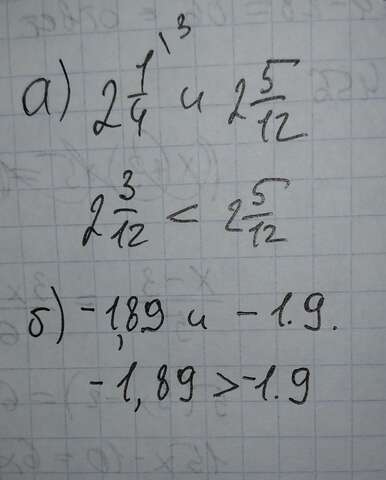 а) 2 1/4 \3 и 2 5/12
2 3/12 < 2 5/12
б) -1,89 и -1.9.
-1,89 > -1.9